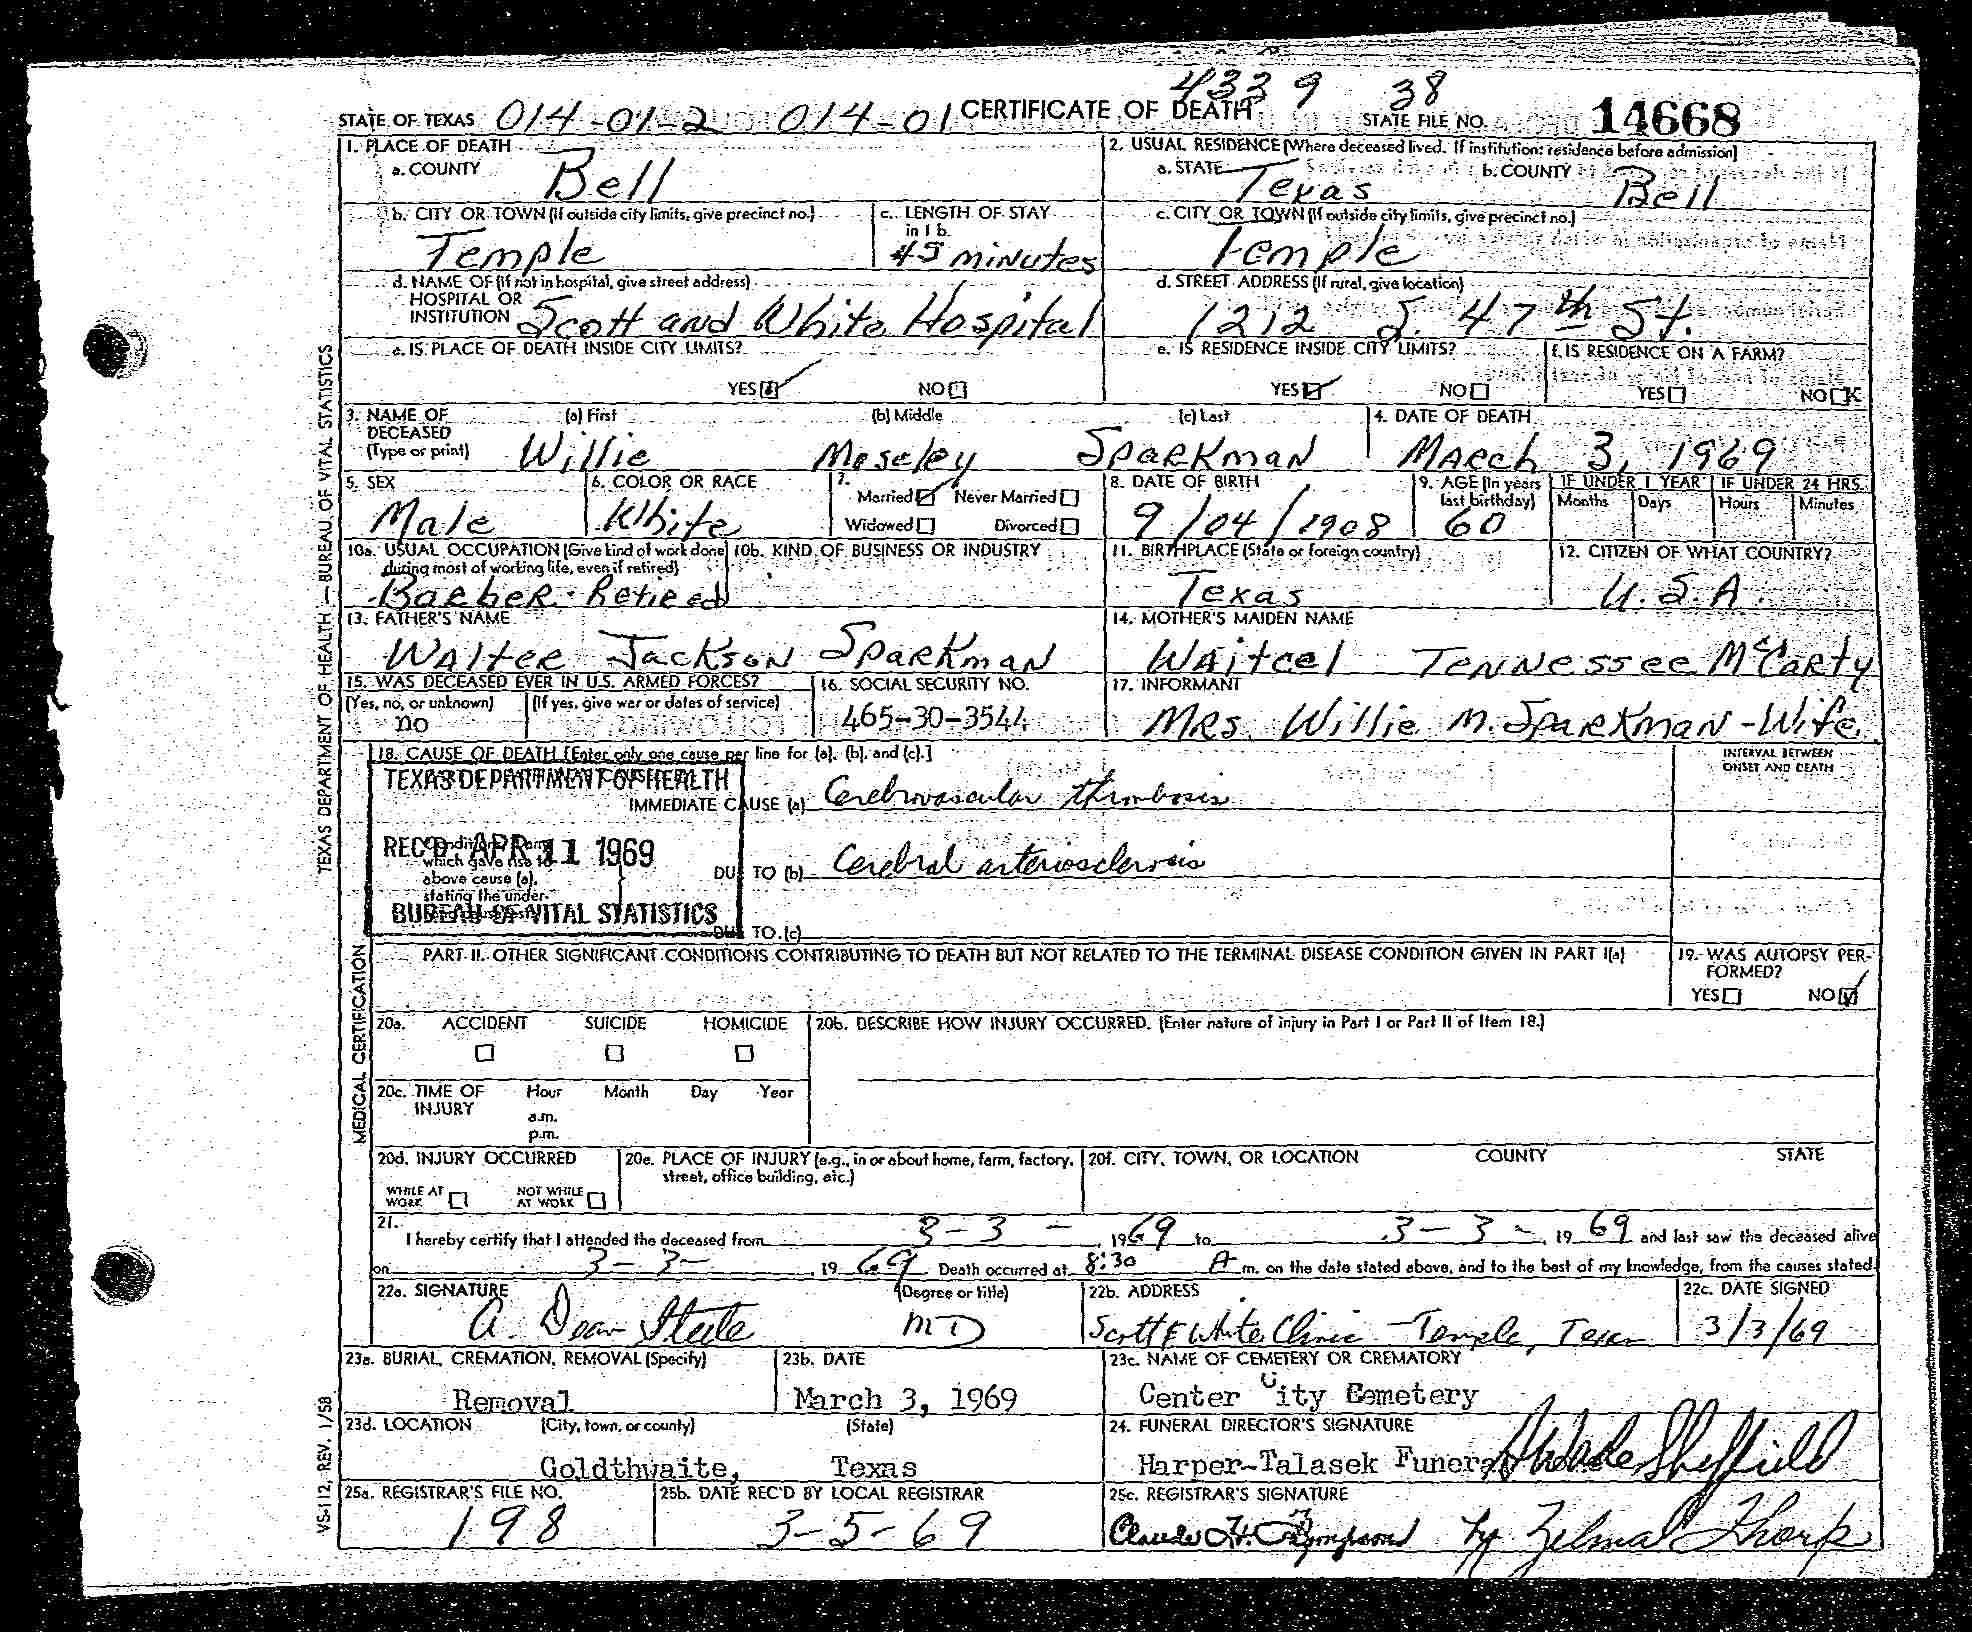 4339 38
STATE OF TEXAS 014-01-2 014-01 CERTIFICATE OF DEATH STATE FILE NO. 14668
1. PLACE OF DEATH
a. COUNTY Bell
2. USUAL RESIDENCE (Where deceased lived. If institution: residence before admission)
a. STATE Texas b. COUNTY Bell
b. CITY OR TOWN (If outside city limits, give precinct no.) Temple
c. LENGTH OF STAY in 1 b. 45 minutes
c. CITY OR TOWN (If outside city limits, give precinct no.) Temple
d. NAME OF (If not in hospital, give street address)
HOSPITAL OR
INSTITUTION Scott and White Hospital
d. STREET ADDRESS (If rural, give location)
1212 S. 47th St.
e. IS PLACE OF DEATH INSIDE CITY LIMITS?
YES NO
e. IS RESIDENCE INSIDE CITY LIMITS?
YES NO
f. IS RESIDENCE ON A FARM?
YES NO
3. NAME OF DECEASED (Type or print)
(a) First (b) Middle (c) Last
Willie Moseley Sparkman
4. DATE OF DEATH
March 3, 1969
5. SEX
Male
6. COLOR OR RACE
White
7. Married Never Married
Widowed Divorced
8. DATE OF BIRTH
9/04/1908
9. AGE (In years last birthday)
60
IF UNDER 1 YEAR IF UNDER 24 HRS.
Months Days Hours Minutes
10a. USUAL OCCUPATION (Give kind of work done during most of working life, even if retired)
Barber-Retired
10b. KIND OF BUSINESS OR INDUSTRY
11. BIRTHPLACE (State or foreign country)
Texas
12. CITIZEN OF WHAT COUNTRY?
U.S.A.
13. FATHER'S NAME
Walter Jackson Sparkman
14. MOTHER'S MAIDEN NAME
Waitcel Tennessee McCarty
15. WAS DECEASED EVER IN U.S. ARMED FORCES?
(Yes, no, or unknown) (If yes, give war or dates of service)
no
16. SOCIAL SECURITY NO.
465-30-3544
17. INFORMANT
Mrs. Willie M. Sparkman-Wife
18. CAUSE OF DEATH [Enter only one cause per line for (a), (b), and (c).]
INTERVAL BETWEEN
ONSET AND DEATH
TEXAS DEPARTMENT OF HEALTH
IMMEDIATE CAUSE (a) Cerebrovascular thrombosis
REC'D APR 11 1969
which gave rise to
above cause (a),
stating the under-
DUE TO (b) Cerebral arteriosclerosis
BUREAU OF VITAL STATISTICS
DUE TO (c)
PART II. OTHER SIGNIFICANT CONDITIONS CONTRIBUTING TO DEATH BUT NOT RELATED TO THE TERMINAL DISEASE CONDITION GIVEN IN PART I(a)
19. WAS AUTOPSY PER-
FORMED?
YES NO
20a. ACCIDENT SUICIDE HOMICIDE
20b. DESCRIBE HOW INJURY OCCURRED. (Enter nature of injury in Part I or Part II of Item 18.)
20c. TIME OF INJURY Hour Month Day Year
a.m.
p.m.
20d. INJURY OCCURRED
WHILE AT WORK NOT WHILE AT WORK
20e. PLACE OF INJURY (e.g., in or about home, farm, factory, street, office building, etc.)
20f. CITY, TOWN, OR LOCATION COUNTY STATE
21.
I hereby certify that I attended the deceased from 3-3- , 1969 to 3-3- , 19 69 and last saw the deceased alive
on 3-3- , 19 69 Death occurred at 8:30 A m. on the date stated above, and to the best of my knowledge, from the causes stated.
22a. SIGNATURE (Degree or title)
A. Dean Steele MD
22b. ADDRESS
Scott & White Clinic Temple, Texas
22c. DATE SIGNED
3/3/69
23a. BURIAL, CREMATION, REMOVAL (Specify)
Removal
23b. DATE
March 3, 1969
23c. NAME OF CEMETERY OR CREMATORY
Center City Cemetery
23d. LOCATION (City, town, or county) (State)
Goldthwaite, Texas
24. FUNERAL DIRECTOR'S SIGNATURE
Harper-Talasek Funeral Wade Sheffield
25a. REGISTRAR'S FILE NO.
198
25b. DATE REC'D BY LOCAL REGISTRAR
3-5-69
25c. REGISTRAR'S SIGNATURE
Claude H. Thompson by Zelma Thorp
TEXAS DEPARTMENT OF HEALTH — BUREAU OF VITAL STATISTICS
MEDICAL CERTIFICATION
VS-112, REV. 1/58